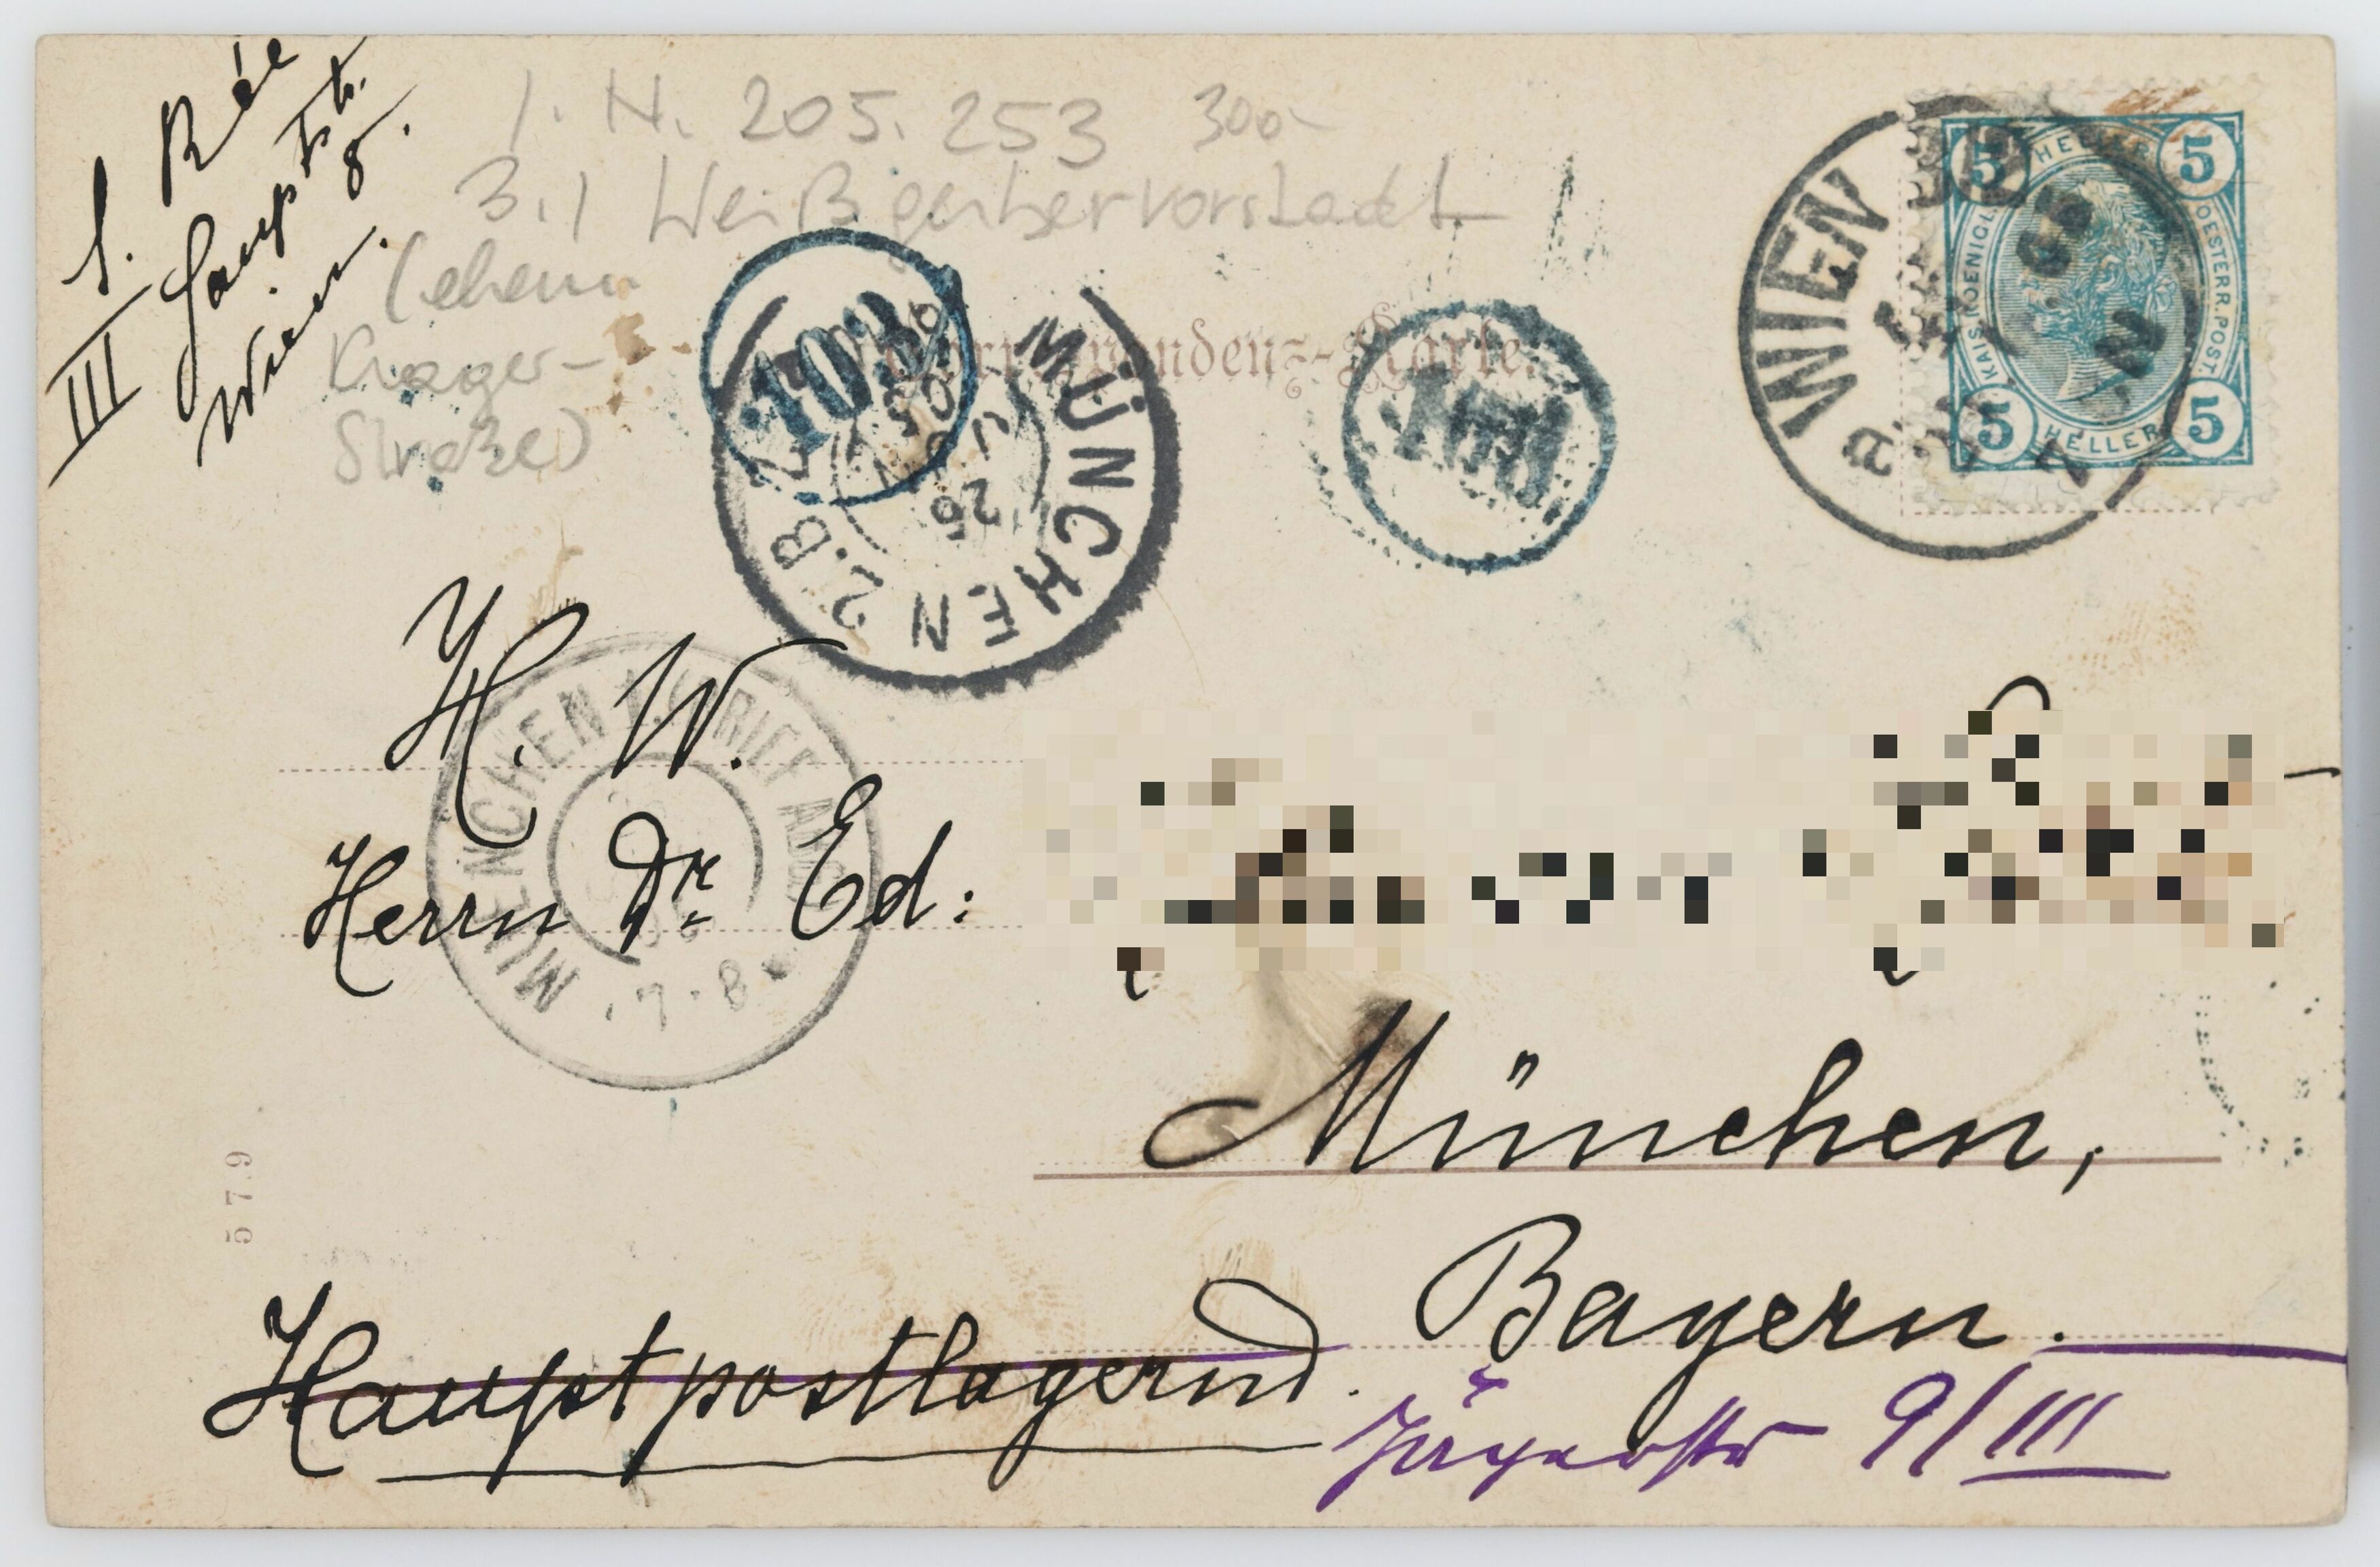 S. Rée
III Hauptstr. 8.
Wien.
I. N. 205.253 300-
3.) Weißgerbervorstadt
(ehem.
Straße)
Correspondenz-Karte.
103
MÜNCHEN 2.B.Z.
26
WIEN
5 HELLER 5
KAIS. KOENIGL. OESTERR. POST
5 HELLER 5
H. W.
Herrn Dr. Ed:
MUENCHEN
7-8
München,
Bayern.
Hauptpostlagernd.
Jägerstr 9/III
579